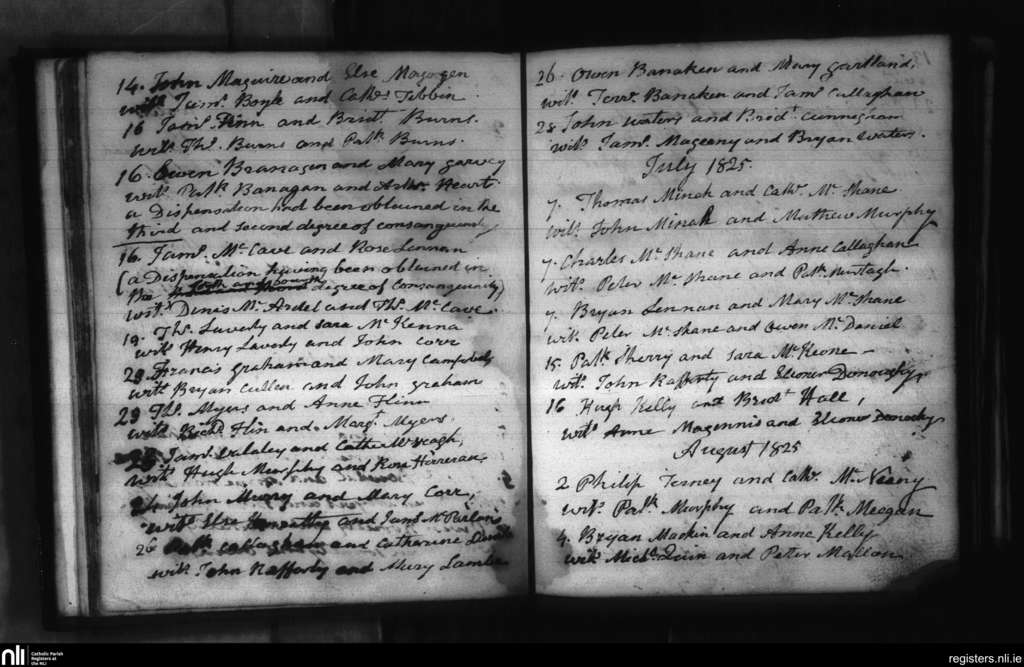 14. John Maguire and Else Magogen
wits Jams. Boyle and Cathe. Tebbin
16 Jams. Finn and Bridt. Burns.
wits Ths. Burns and Patk. Burns.
16. Owen Branagen and Mary garvey
wits Patk. Banagan and Heart
a Dispensation had been obtained in the
third and second degree of consanguinity
16. Jams. Mc. Cave and Rose Lennan
(a Dispensation having been obtained in
the degree of Consanguinity)
wits. Denis Mc. Ardel and Ths. Mc. Cave.
19. Ths. Laverty and Sara Mc Kenna
wits Henry Laverty and John Corr
29. Francis graham and Mary Campbell
wits Bryan Cullen and John graham
29 Ths. Myers and Anne Flinn
wits Richd. Flin and Margt. Myers
Jams. and
wits Hugh Murphy and Rose
John Murry and Mary Corr,
wits Else and Jams.
26 Patk. Callaghan and Catharine
wits John Rafferty and Mary Lambe
26. Owen Banaken and Mary gartland.
wits. Banaken and Jams. Callaghan
28 John Waters and Bridt. Cunnegram
wits Jams. Mageany and Bryan Waters.
July 1825.
7. Thomas Minah and Cathe. Mc. Shane
wits John Minah and Mathew Murphy
7. Charles Mc. Shane and Anne Callaghan
wits. Peter Mc. Shane and Patk. Murtagh.
7. Bryan Lennan and Mary Mc. Shane
wits. Peter Mc. Shane and Owen Mc. Daniel
15. Patk. Sherry and Sara Mc. Keone
wits. John Rafferty and Elioner Donoughy
16 Hugh Kelly and Bridt. Hall,
wits Anne Magennis and Elioner
August 1825
2 Philip Terney and Cathe. Mc. Neany
wits. Patk. Murphy and Patk. Meegan
4. Bryan Mackin and Anne Kelly
wits. Michl. Quin and Peter Mallon
nli Catholic Parish
Registers at
the NLI
registers.nli.ie